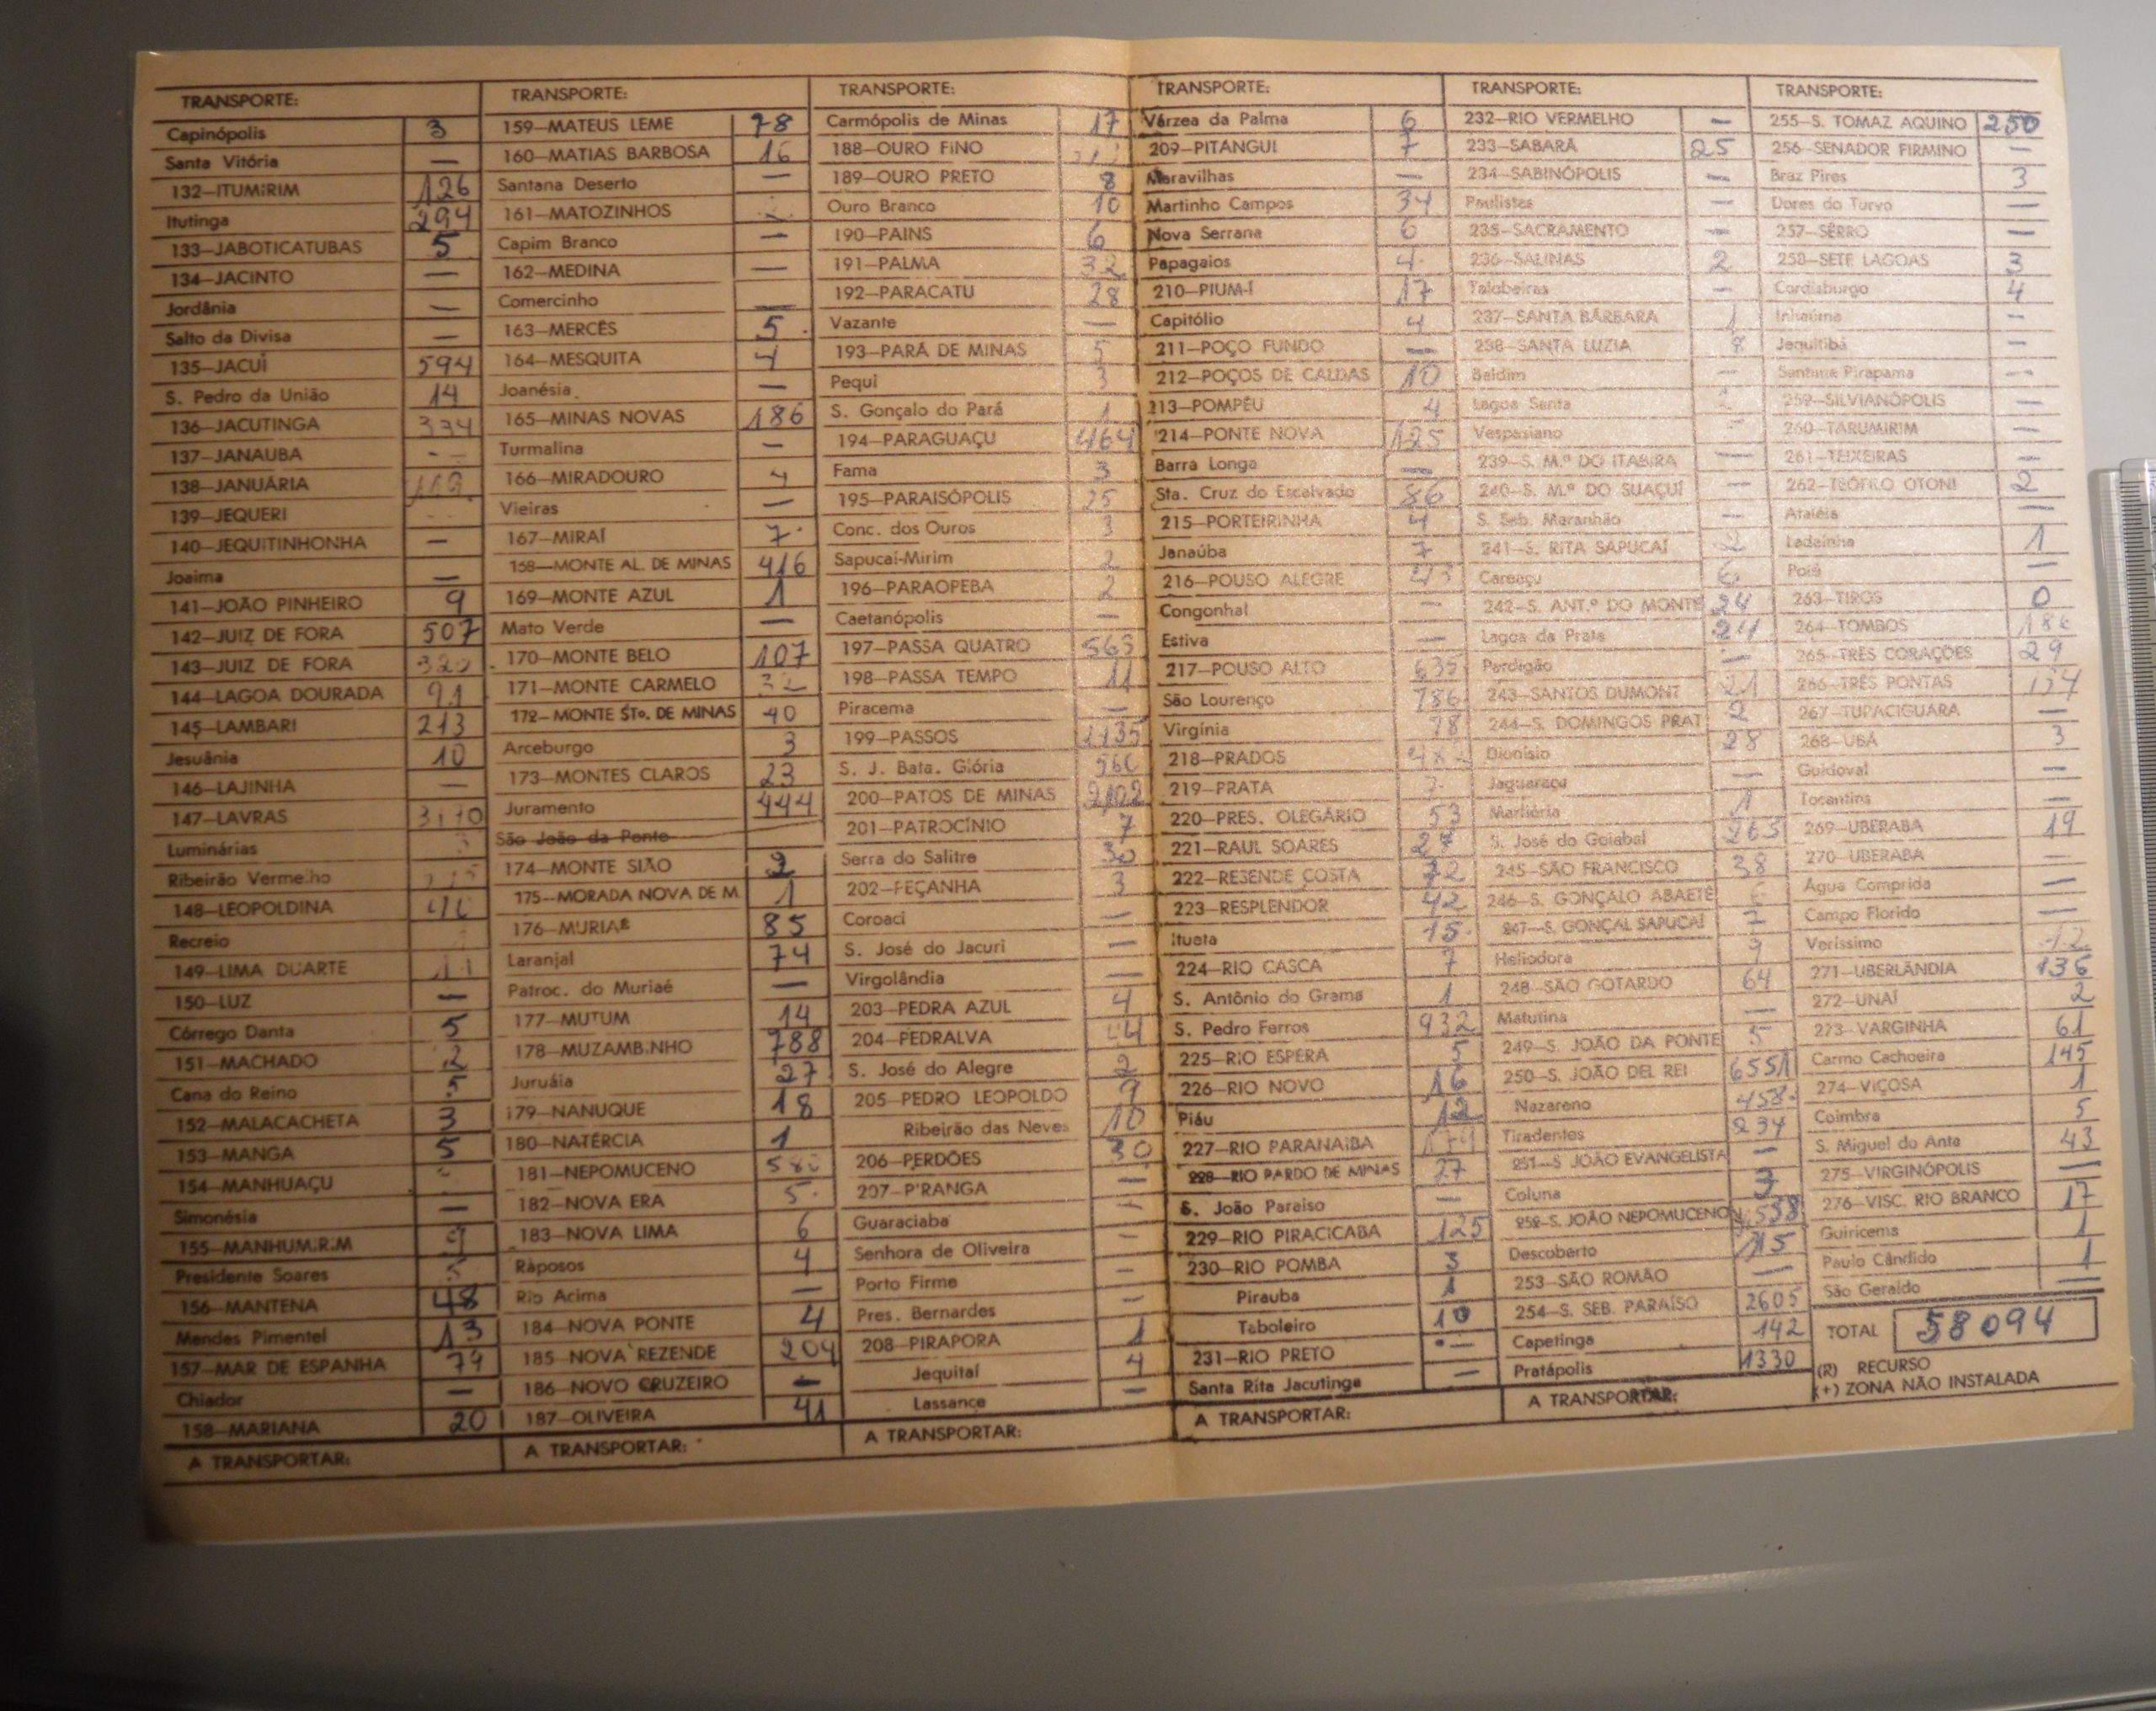 TRANSPORTE:
Capinópolis 3
Santa Vitória —
132—ITUMIRIM 126
Itutinga 294
133—JABOTICATUBAS 5
134—JACINTO —
Jordânia —
Salto da Divisa —
135—JACUÍ 594
S. Pedro da União 14
136—JACUTINGA 334
137—JANAUBA
138—JANUÁRIA
139—JEQUERI
140—JEQUITINHONHA —
Joaima —
141—JOÃO PINHEIRO 9
142—JUIZ DE FORA 507
143—JUIZ DE FORA 320
144—LAGOA DOURADA 91
145—LAMBARI 213
Jesuânia 10
146—LAJINHA —
147—LAVRAS 3170
Luminárias 3
Ribeirão Vermelho
148—LEOPOLDINA
Recreio
149—LIMA DUARTE 11
150—LUZ —
Córrego Danta 5
151—MACHADO 2
Cana do Reino 5
152—MALACACHETA 3
153—MANGA 5
154—MANHUAÇU
Simonésia —
155—MANHUMIRIM 9
Presidente Soares
156—MANTENA 48
Mendes Pimentel 13
157—MAR DE ESPANHA 79
Chiador —
158—MARIANA 20
A TRANSPORTAR:
TRANSPORTE:
159—MATEUS LEME 78
160—MATIAS BARBOSA 16
Santana Deserto —
161—MATOZINHOS
Capim Branco —
162—MEDINA —
Comercinho —
163—MERCÊS 5
164—MESQUITA 4
Joanésia —
165—MINAS NOVAS 186
Turmalina —
166—MIRADOURO 4
Vieiras —
167—MIRAÍ 7
168—MONTE AL. DE MINAS 416
169—MONTE AZUL 1
Mato Verde —
170—MONTE BELO 107
171—MONTE CARMELO 32
172—MONTE STo. DE MINAS 40
Arceburgo 3
173—MONTES CLAROS 23
Juramento 444
São João da Ponte
174—MONTE SIÃO 2
175—MORADA NOVA DE M. 1
176—MURIAÉ 85
Laranjal 74
Patroc. do Muriaé —
177—MUTUM 14
178—MUZAMBINHO 788
Juruáia 27
179—NANUQUE 18
180—NATÉRCIA 1
181—NEPOMUCENO
182—NOVA ERA 5
183—NOVA LIMA 6
Ràposos 4
Rio Acima —
184—NOVA PONTE 4
185—NOVA REZENDE 204
186—NOVO CRUZEIRO —
187—OLIVEIRA 41
A TRANSPORTAR:
TRANSPORTE:
Carmópolis de Minas 17
188—OURO FINO
189—OURO PRETO 8
Ouro Branco 10
190—PAINS 6
191—PALMA 32
192—PARACATU 28
Vazante —
193—PARÁ DE MINAS 5
Pequi 3
S. Gonçalo do Pará 1
194—PARAGUAÇU 464
Fama 3
195—PARAISÓPOLIS 25
Conc. dos Ouros 3
Sapucaí-Mirim 2
196—PARAOPEBA 2
Caetanópolis —
197—PASSA QUATRO 563
198—PASSA TEMPO 11
Piracema —
199—PASSOS 1135
S. J. Bata. Glória 560
200—PATOS DE MINAS 2102
201—PATROCÍNIO 7
Serra do Salitre 30
202—PEÇANHA 3
Coroaci —
S. José do Jacuri —
Virgolândia —
203—PEDRA AZUL 4
204—PEDRALVA 44
S. José do Alegre 2
205—PEDRO LEOPOLDO 9
Ribeirão das Neves 10
206—PERDÕES 30
207—PIRANGA —
Guaraciaba —
Senhora de Oliveira —
Porto Firme —
Pres. Bernardes —
208—PIRAPORA 1
Jequitaí 4
Lassance —
A TRANSPORTAR:
TRANSPORTE:
Várzea da Palma 6
209—PITANGUI 7
Maravilhas —
Martinho Campos 34
Nova Serrana 6
Papagaios 4
210—PIUM-Í 17
Capitólio 4
211—POÇO FUNDO —
212—POÇOS DE CALDAS 10
213—POMPÉU 4
214—PONTE NOVA 125
Barra Longa —
Sta. Cruz do Escalvado 86
215—PORTEIRINHA 4
Janaúba 7
216—POUSO ALEGRE
Congonhal —
Estiva —
217—POUSO ALTO 635
São Lourenço 786
Virgínia 78
218—PRADOS
219—PRATA
220—PRES. OLEGÁRIO 53
221—RAUL SOARES
222—RESENDE COSTA
223—RESPLENDOR 42
Itueta 15
224—RIO CASCA 7
S. Antônio do Grama 1
S. Pedro Ferros 932
225—RIO ESPERA 5
226—RIO NOVO 16
Piáu 12
227—RIO PARANAIBA
228—RIO PARDO DE MINAS 27
S. João Paraiso —
229—RIO PIRACICABA 125
230—RIO POMBA 3
Pirauba 1
Taboleiro 10
231—RIO PRETO —
Santa Rita Jacutinga —
A TRANSPORTAR:
TRANSPORTE:
232—RIO VERMELHO —
233—SABARÁ 25
234—SABINÓPOLIS —
Paulistas —
235—SACRAMENTO —
236—SALINAS 2
Taiobeiras —
237—SANTA BÁRBARA 1
238—SANTA LUZIA 8
Baldim —
Lagoa Santa
Vespasiano
239—S. M.ª DO ITABIRA —
240—S. M.ª DO SUAÇUÍ —
S. Seb. Maranhão —
241—S. RITA SAPUCAÍ 2
Careaçu 6
242—S. ANT.º DO MONTE 24
Lagoa da Prata 24
Perdigão —
243—SANTOS DUMONT 21
244—S. DOMINGOS PRAT 2
Dionísio 28
Jaguaraçu —
Marliéria 1
S. José do Goiabal 263
245—SÃO FRANCISCO 38
246—S. GONÇALO ABAETÉ 6
247—S. GONÇAL SAPUCAÍ 7
Heliodora 9
248—SÃO GOTARDO 64
Matutina —
249—S. JOÃO DA PONTE 5
250—S. JOÃO DEL REI 6551
Nazareno 458
Tiradentes 234
251—S JOÃO EVANGELISTA —
Coluna
252—S. JOÃO NEPOMUCENO
Descoberto 115
253—SÃO ROMÃO —
254—S. SEB. PARAÍSO 2605
Capetinga 142
Pratápolis 1330
A TRANSPORTAR:
TRANSPORTE:
255—S. TOMAZ AQUINO 250
256—SENADOR FIRMINO —
Braz Pires 3
Dores do Turvo —
257—SÊRRO —
258—SETE LAGOAS 3
Cordisburgo 4
Inhaúma —
Jequitibá —
Santana Pirapama —
259—SILVIANÓPOLIS —
260—TARUMIRIM —
261—TEIXEIRAS —
262—TEÓFILO OTONI 2
Ataléia —
Ladainha 1
Poté —
263—TIROS 0
264—TOMBOS 186
265—TRÊS CORAÇÕES 29
266—TRÊS PONTAS
267—TUPACIGUARA —
268—UBÁ 3
Guidoval —
Tocantins —
269—UBERABA 19
270—UBERABA —
Água Comprida —
Campo Florido —
Veríssimo 12
271—UBERLÂNDIA 136
272—UNAÍ 2
273—VARGINHA 61
Carmo Cachoeira 145
274—VIÇOSA 1
Coimbra 5
S. Miguel do Anta 43
275—VIRGINÓPOLIS —
276—VISC. RIO BRANCO 17
Guiricema 1
Paulo Cândido 1
São Geraldo —
TOTAL 58094
(R) RECURSO
(+) ZONA NÃO INSTALADA